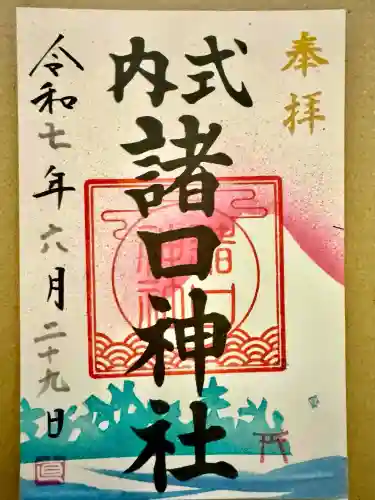 奉拝
式内
諸口神社
諸口
神社
令和七年六月二十九日